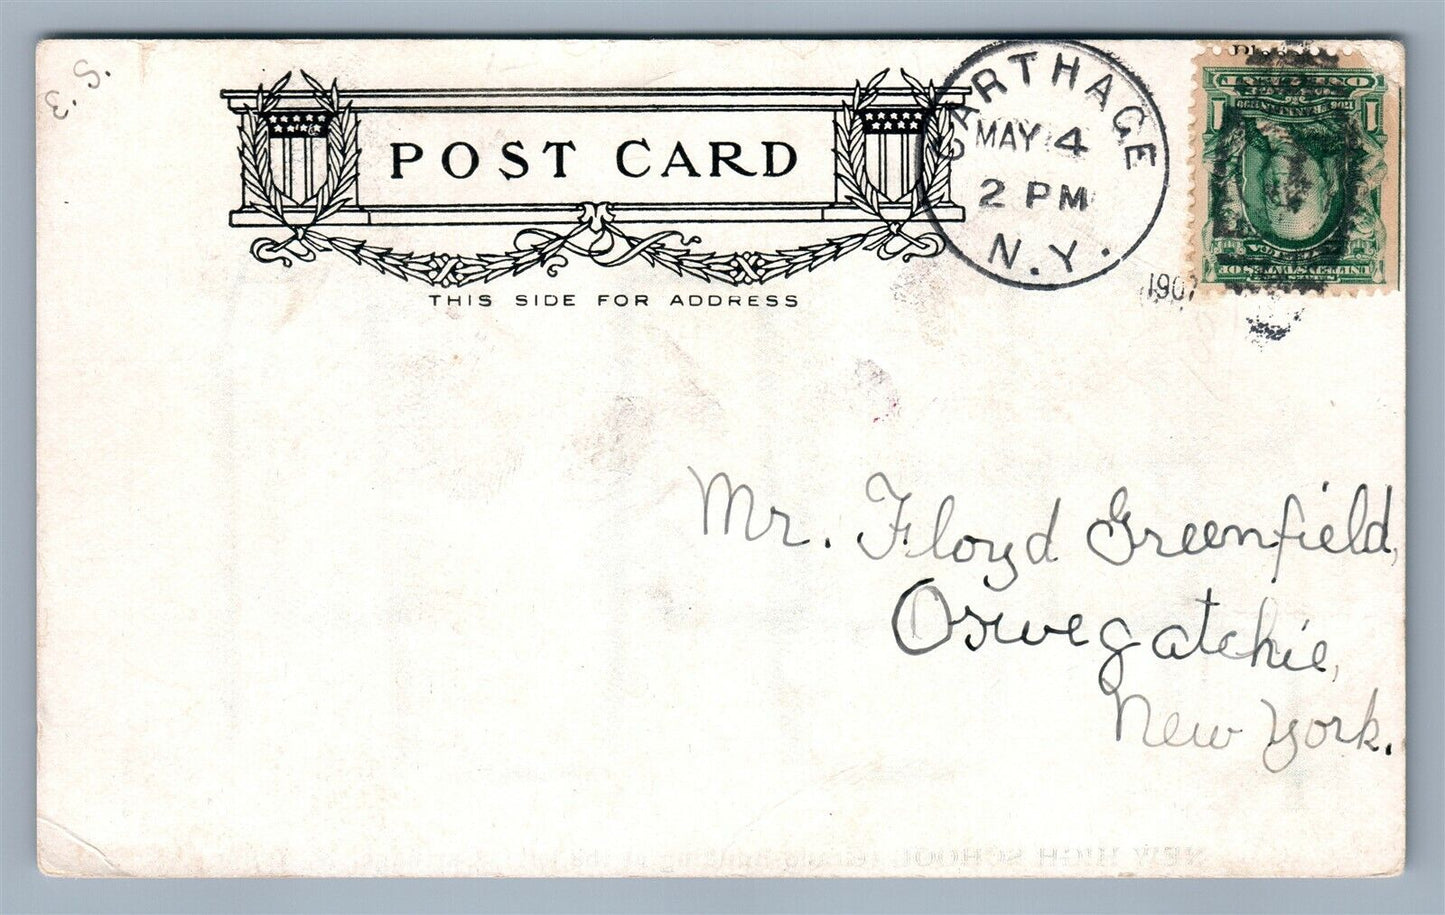 E. S.
POST CARD
THIS SIDE FOR ADDRESS
CARTHAGE
MAY 4
2 PM
N.Y.
1907
1
Mr. Floyd Greenfield,
Oswegatchie,
New York.
NEW HIGH SCHOOL